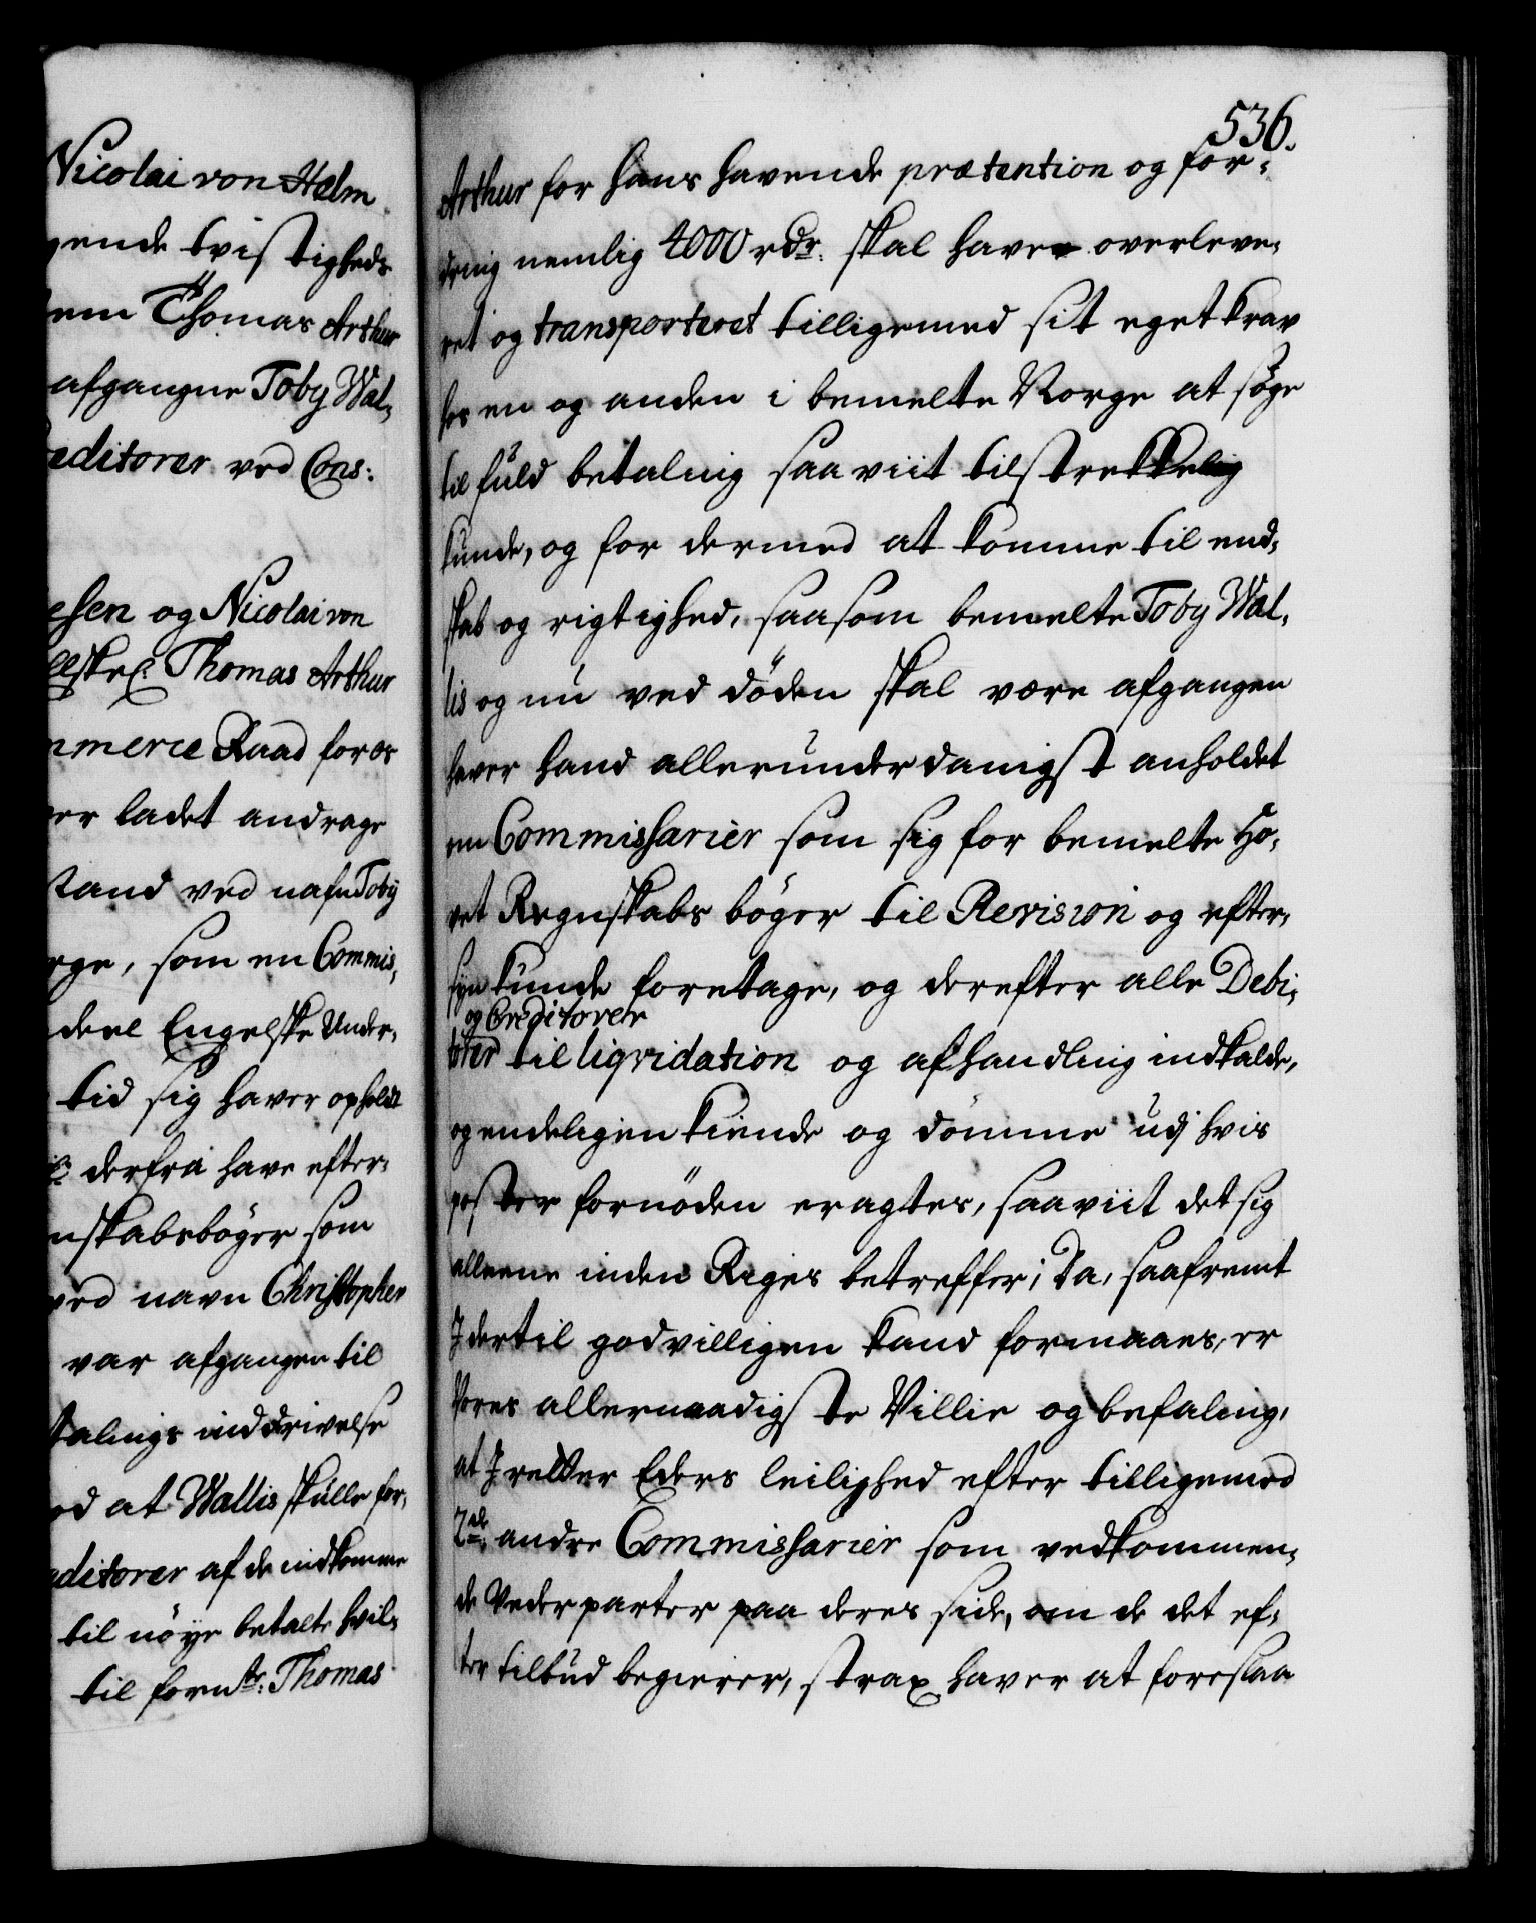 Nicolai von Helm
gende tvistigheds
tem Thomas Arthur
afgangne Toby Wal-
reditorer ved Cons:
esen og Nicolai von
llskel. Thomas Arthur
mmerce Raad for os
er ladet andrage
tand ved nafn Toby
rge, som en Commis,
deel Engelske Under,
tid sig haver opholdt
derfra have efter-
nskabsbøger som
ved navn Christopher
var afgangen til
talings inddrivelse
od at Wallis skulle for,
editorer af de indkomme
til nøye betalte hvil-
til fornte: Thomas
536.
Arthur for hans havende prætention og for-
dring nemlig 4000 rdr. skal have overleve,
ret og transporteret tilligemed sit eget krav
hos en og anden i bemelte Norge at søge
til fuld betaling saaviit tilstrekkelig
kunde, og for dermed at komme til end,
skab og rigtighed, saasom bemelte Toby Wal,
lis og nu ved døden skal være afgangen
haver hand allerunderdanigst anholdet
om Commissarier som sig for bemelte Ho,
vet Regnskabs bøger til Revision og efter,
syn kunde foretage, og derefter alle Debi,
og Creditorer
torer til liqvidation og afhandling indkalde,
og endeligen kiende og dømme udj hvis
poster fornøden eragtes, saaviit det sig
alleene inden Riges betreffer; Da, saafremt
I dertil godvilligen kand formaaes, er
Vores allernaadigste Villie og befaling,
at I retter Eders leilighed efter tilligemed
2de andre Commissarier som vedkommen,
de Vederparter paa deres side, om de det ef-
ter tilbud begierer, strax haver at foreslaa